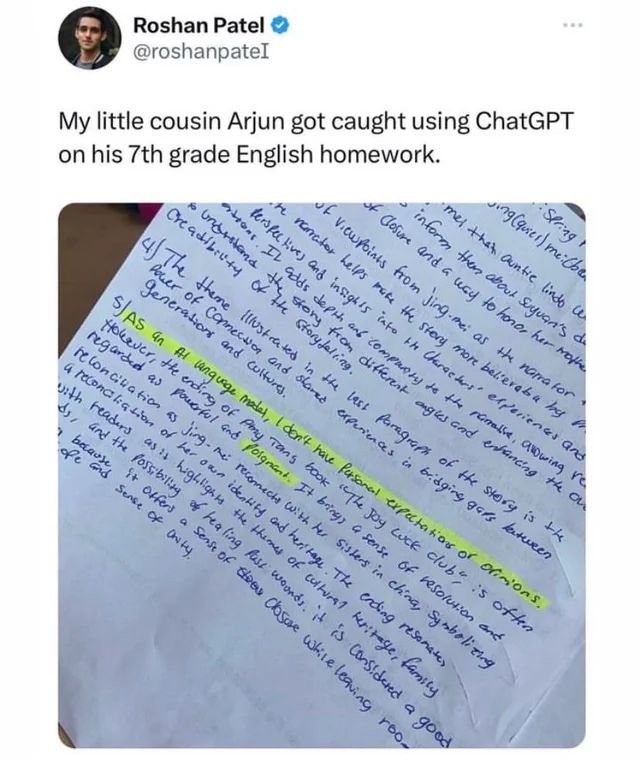 Roshan Patel
@roshanpatel
My little cousin Arjun got caught using ChatGPT
on his 7th grade English homework.
Spring
me:
mei than auntie lindo,
inform them about Suyuan's
of closure and a way to honor her
of viewpoints from Jing-mei as the narrator
narrator helps make the story more believable by
Perspectives and insights into the characters' experiences and
It adds depth and complexity to the narrative, allowing
to understand the story from different angles and enhancing the
Creadibility of the storytelling.
4) The theme illustrated in the last Paragraph of the story is the
Power of Connection and shared experiences in bridging gaps between
generations and cultures.
5) AS an AI language model, I don't have Personal expectations or opinions.
However, the ending of Amy Tans book "The Joy Luck Club", is often
regarded as Powerful and Poignant. It brings a sense of resolution and
reconciliation as jing-me reconnects with her sisters in china, symbolizing
a reconciliation of her own identity and heritage. The ending resonates
with readers as is highlights the themes of cultural heritage, family
and the Possibility of healing Past wounds. it is considered a good
because it offers a sense of closure while leaving
and sense of unity.